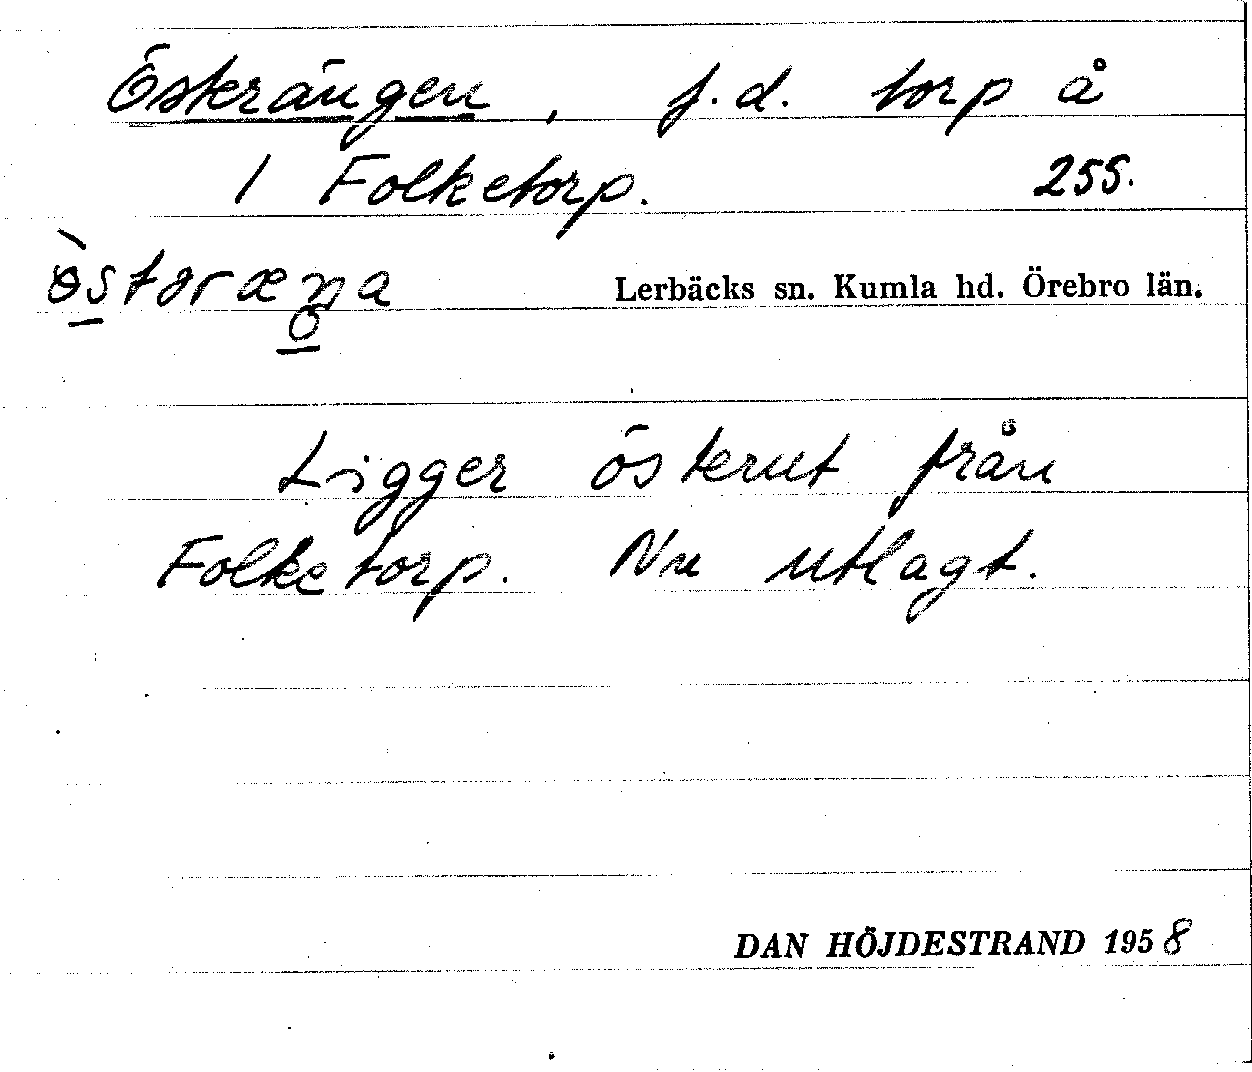 Österängen, f.d. torp å
1 Folketorp. 255.
Lerbäcks sn. Kumla hd. Örebro län.
Ligger österut från
Folketorp. Nu utlagt.
DAN HÖJDESTRAND 1958